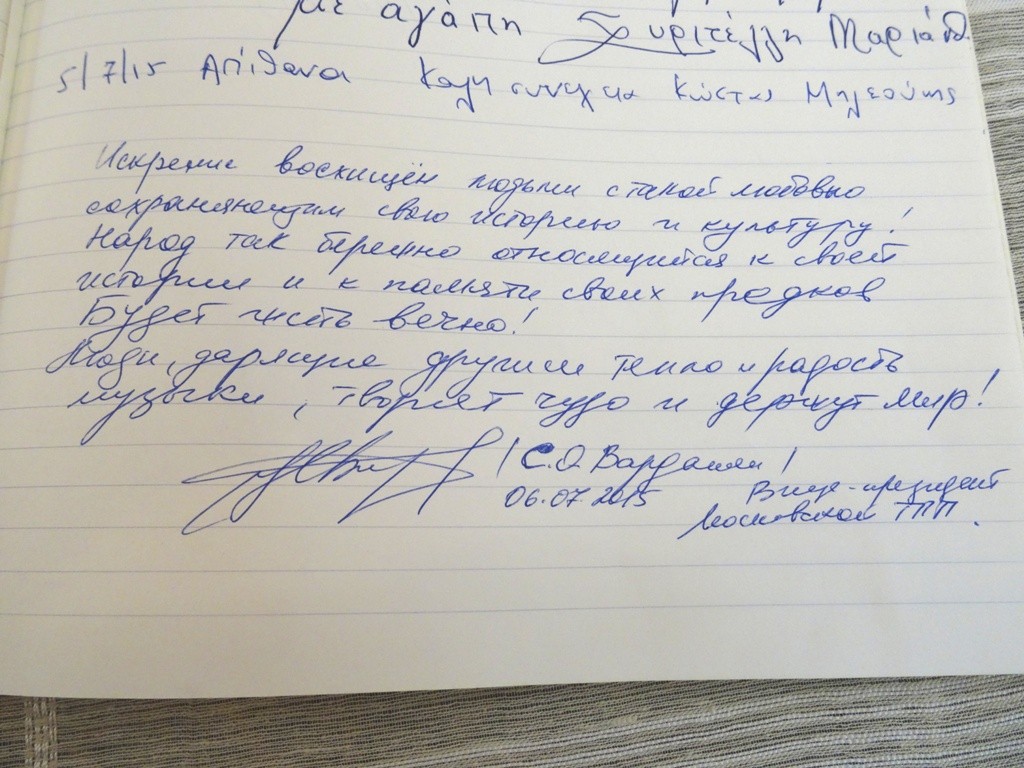 με αγάπη Συριτέλλη Μαριάνθ
5/7/15 Απίθανα Καλή συνέχεια Κώστας
Искренне восхищён людьми с такой любовью
сохраняющим свою историю и культуру!
Народ так бережно относящийся к своей
истории и к памяти своих предков
Будет жить вечно!
Люди, дарящие другим тепло и радость
музыки, творят чудо и держут мир!
/С.О. Варданян/
06.07.2015 Вице-президент
Московской ТПП.